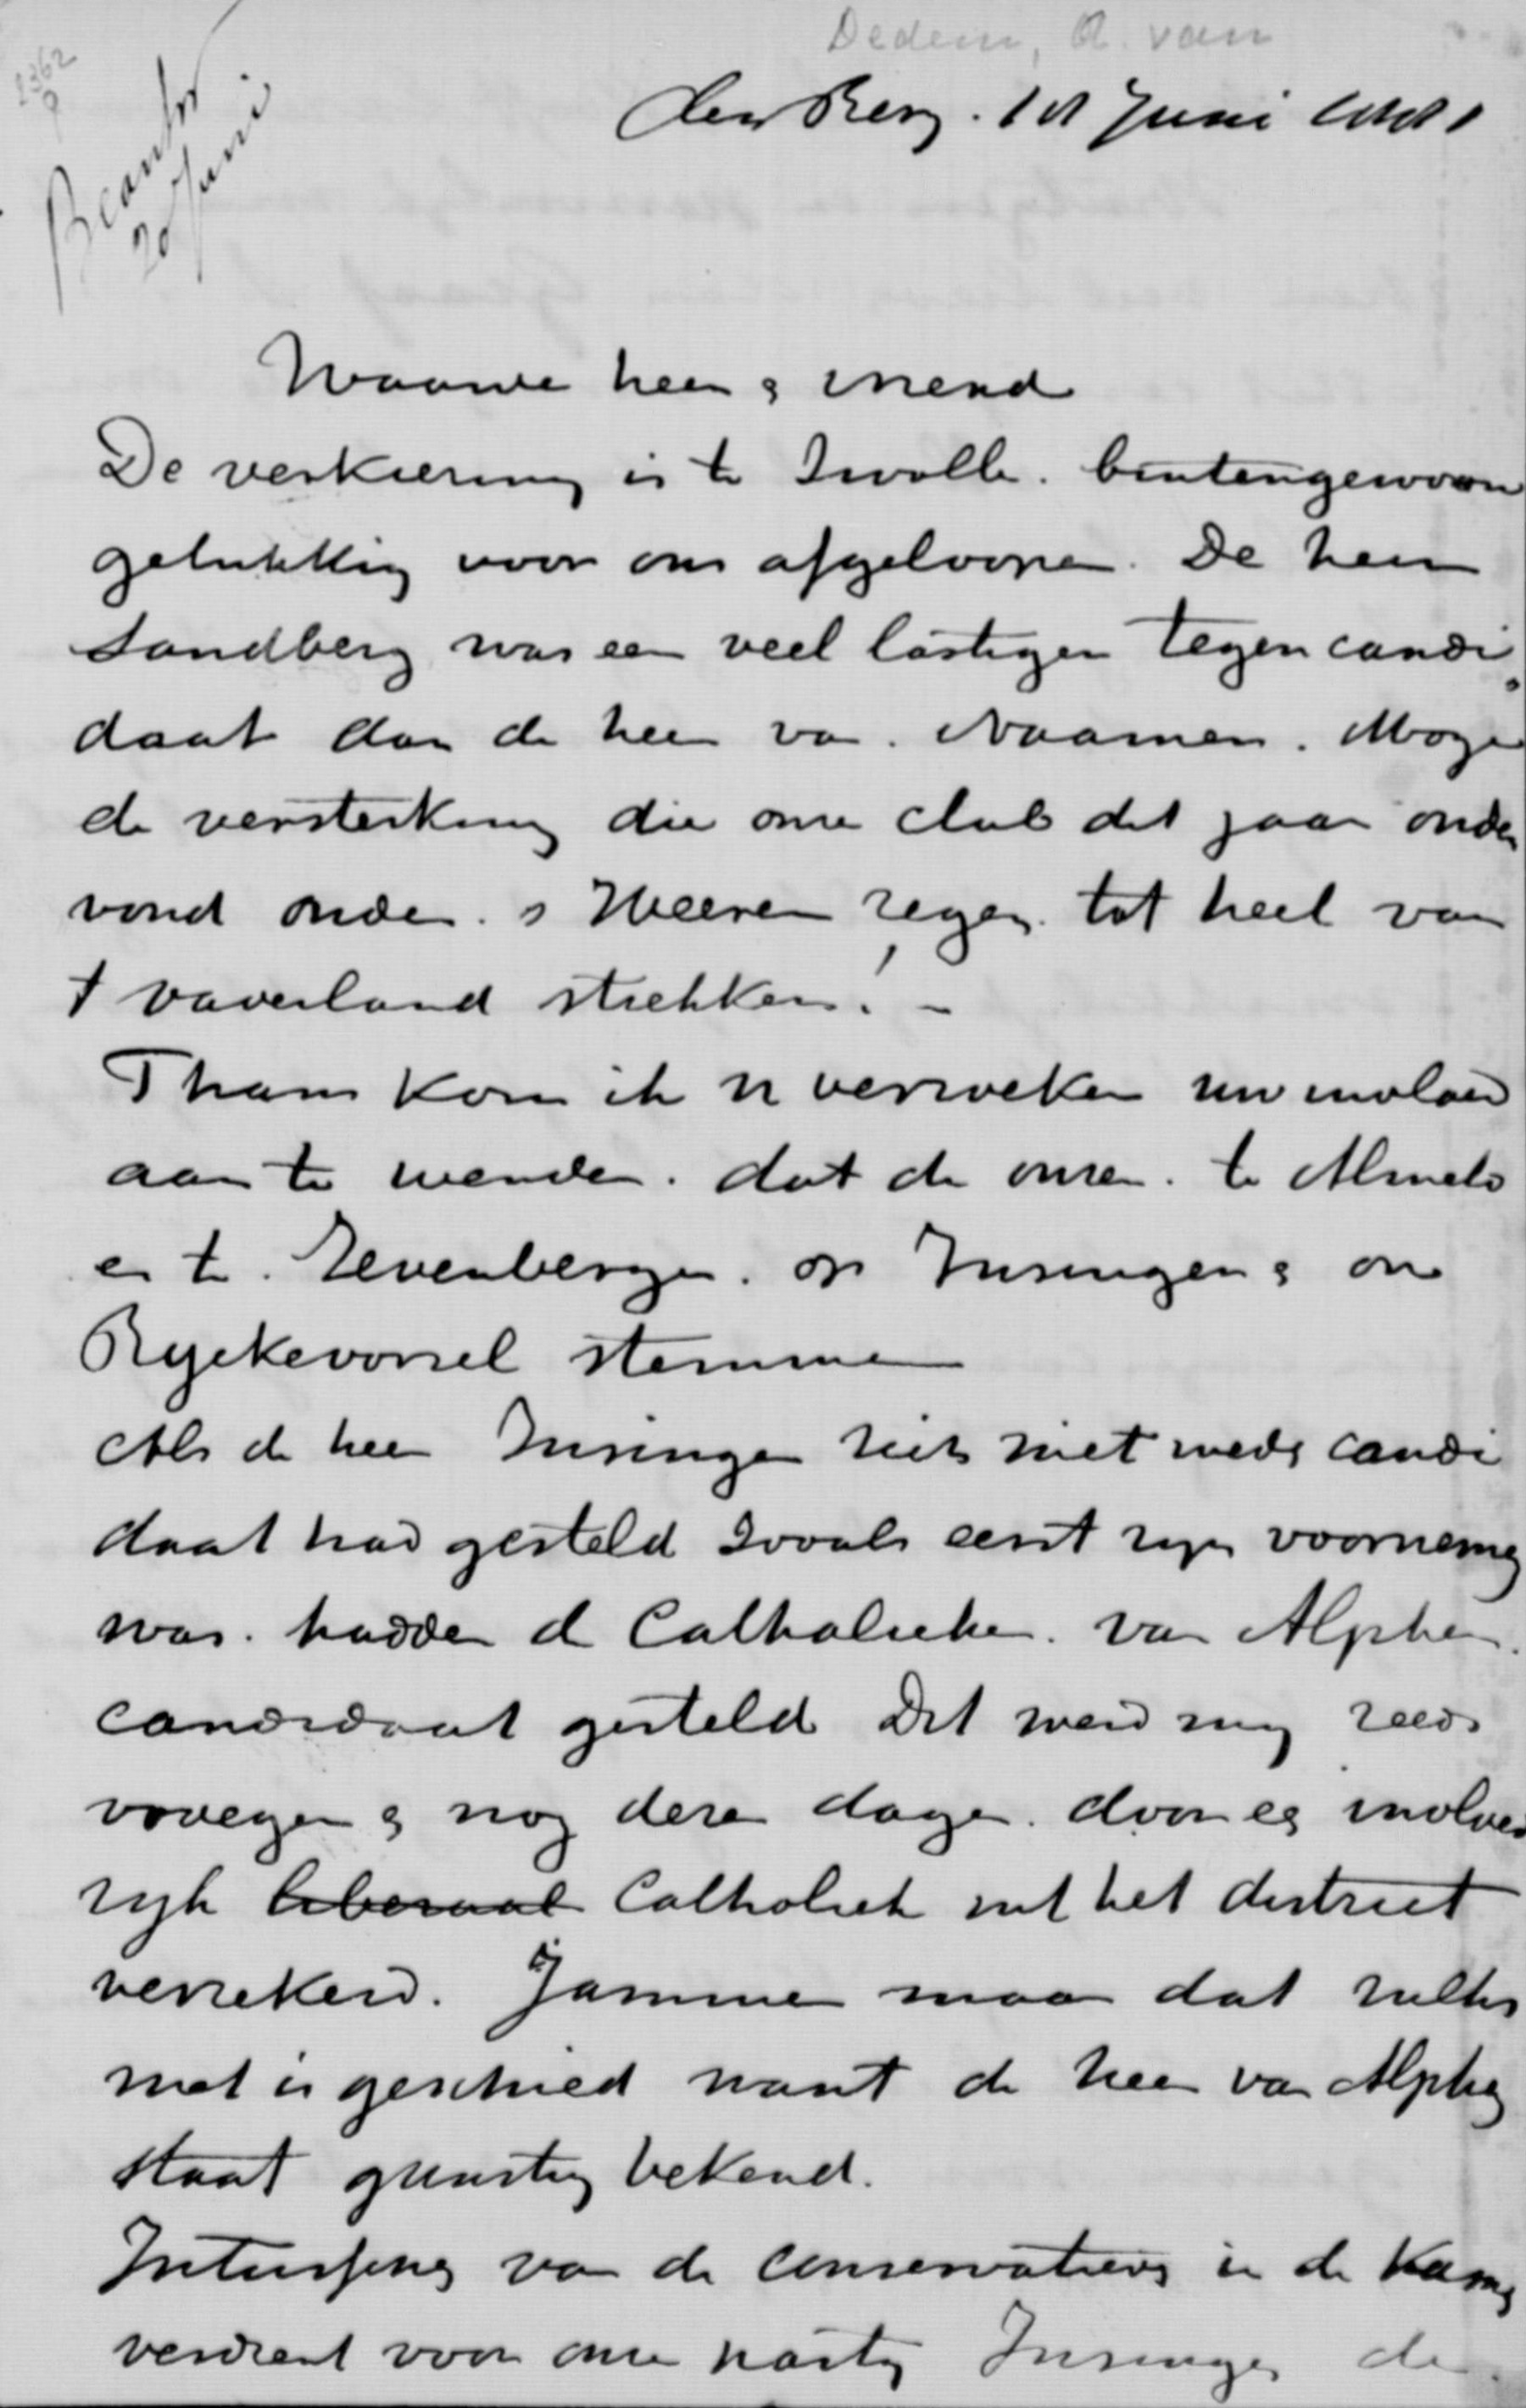 Dedem, A. van
2362
9
Beantw
20 Juni
den Berg. 18 Juni 1881
Waarde heer & vriend
De verkiezing is te Zwolle. buitengewoon
gelukkig voor ons afgeloopen. De heer
Sandberg was een veel lastiger tegencandi
daat dan de heer van Naamen. Moge
de versterking die onze club dit jaar onder
vond onder. s Heeren zegen tot heil van
t vaderland strekken! -
Thans kom ik U verzoeken uw invloed
aan te wenden. dat de onzen. te Almelo
en te. Zevenbergen. op Insinger & on
Ryckevorsel stemmen
Als de heer Insinger zich niet weder candi
daat had gesteld zooals eerst zijn voornemen
was. hadden de Catholieken. van Alphen.
candidaat gesteld Dit werd mij reeds
vroeger & nog dezer dagen. door een invloed
rijk liberaal Catholiek uit het district
verzekerd. Jammer maar dat zulks
niet is geschied want de heer van Alphen
staat gunstig bekend.
Intusschen van de conservatieven in de Kamer
verdient voor onze partij Insinger de